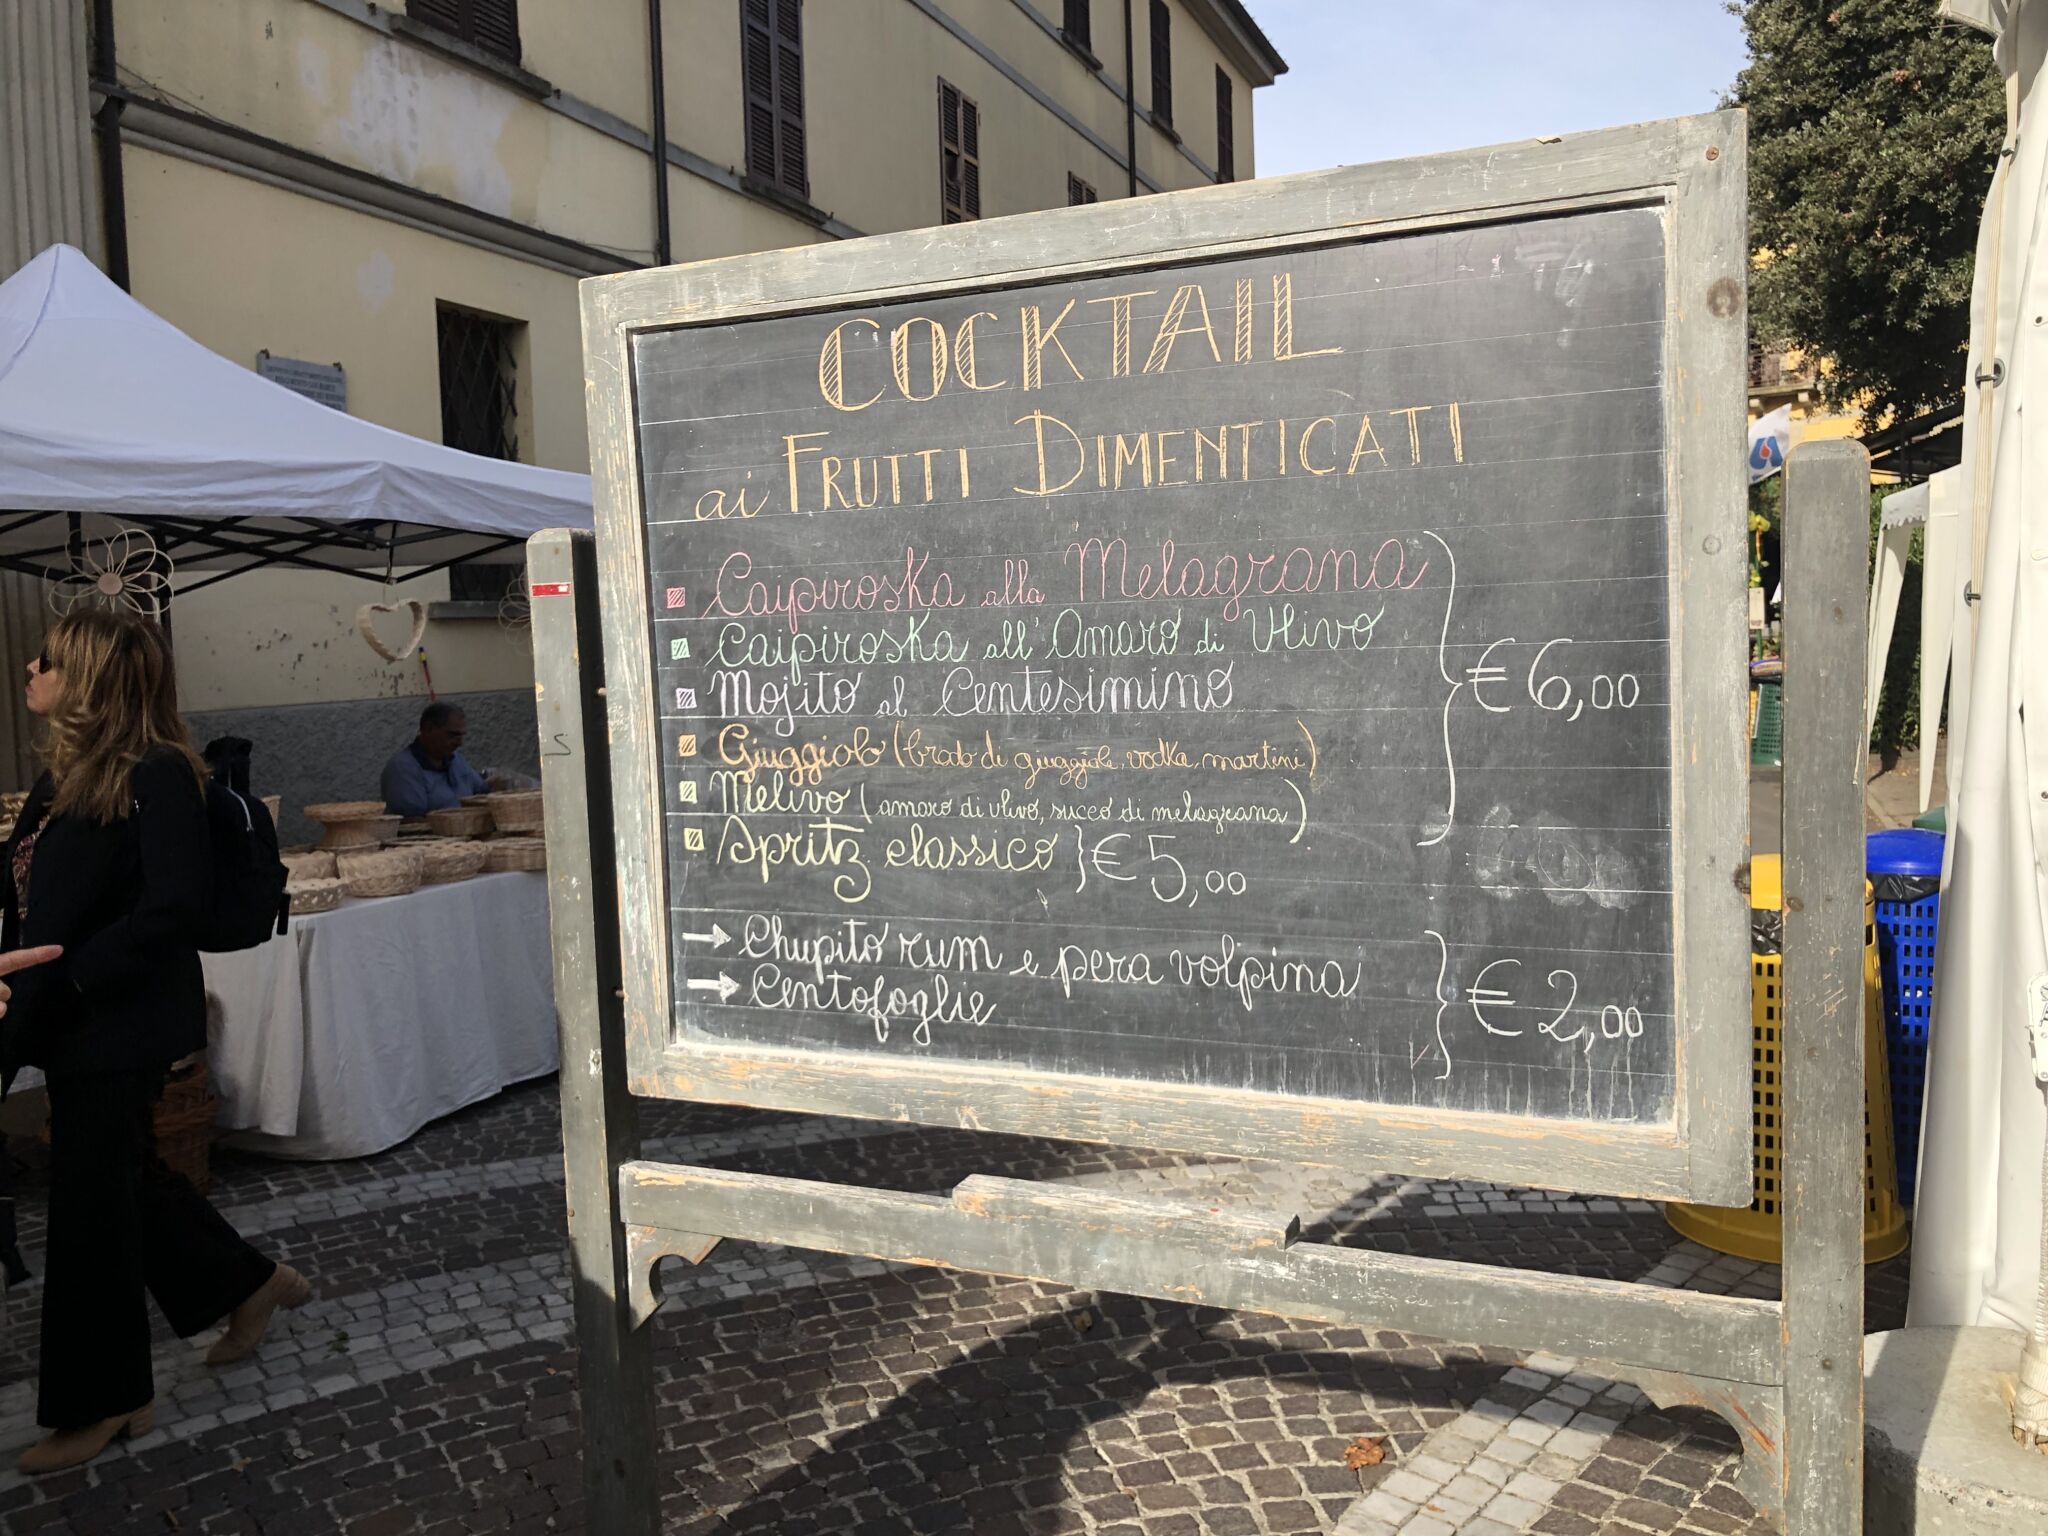 COCKTAIL
ai FRUTTI DIMENTICATI
Caipiroska alla Melagrana
Caipiroska all'Amaro di Ulivo
Mojito al Centesimino
€ 6,00
Giuggiolo (brodo di giuggiole, vodka, martini)
Melivo (amaro di ulivo, succo di melagrana)
Spritz classico } € 5,00
→ Chupito rum e pera volpina
→ Centofoglie
€ 2,00